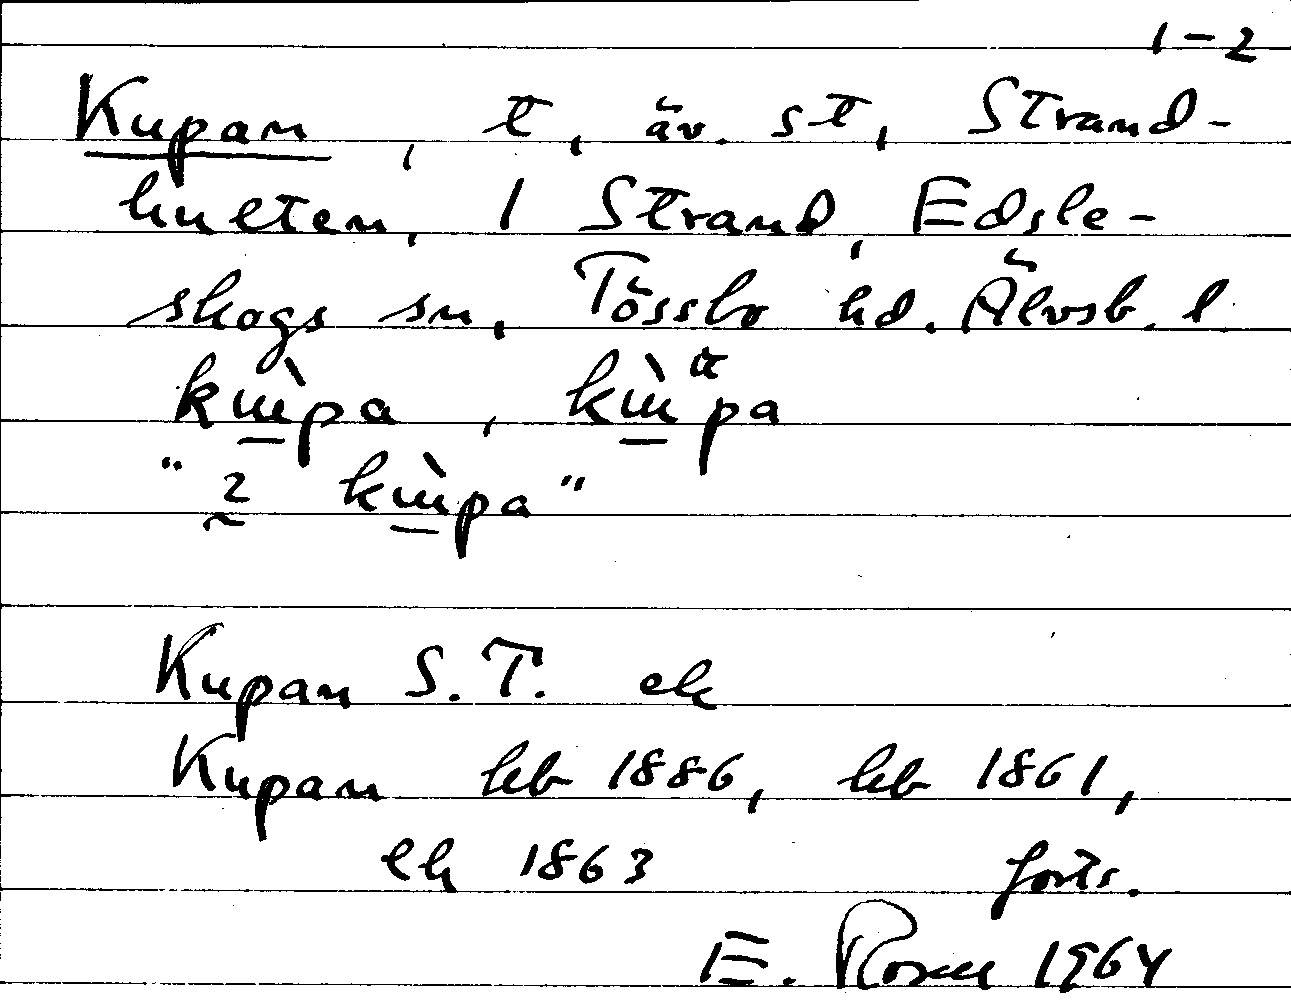 1-2
Kupan, t, äv. st, Strand-
hulten, 1 Strand, Edsle-
skogs sn, Tössbo hd. Älvsb. l.
kɯ̀pa, kɯ̀ᵅpa
"2 kɯ̀pa"
Kupan S.T. ek
Kupan hb 1886, hb 1861,
ek 1863 forts.
E. Rosell 1964